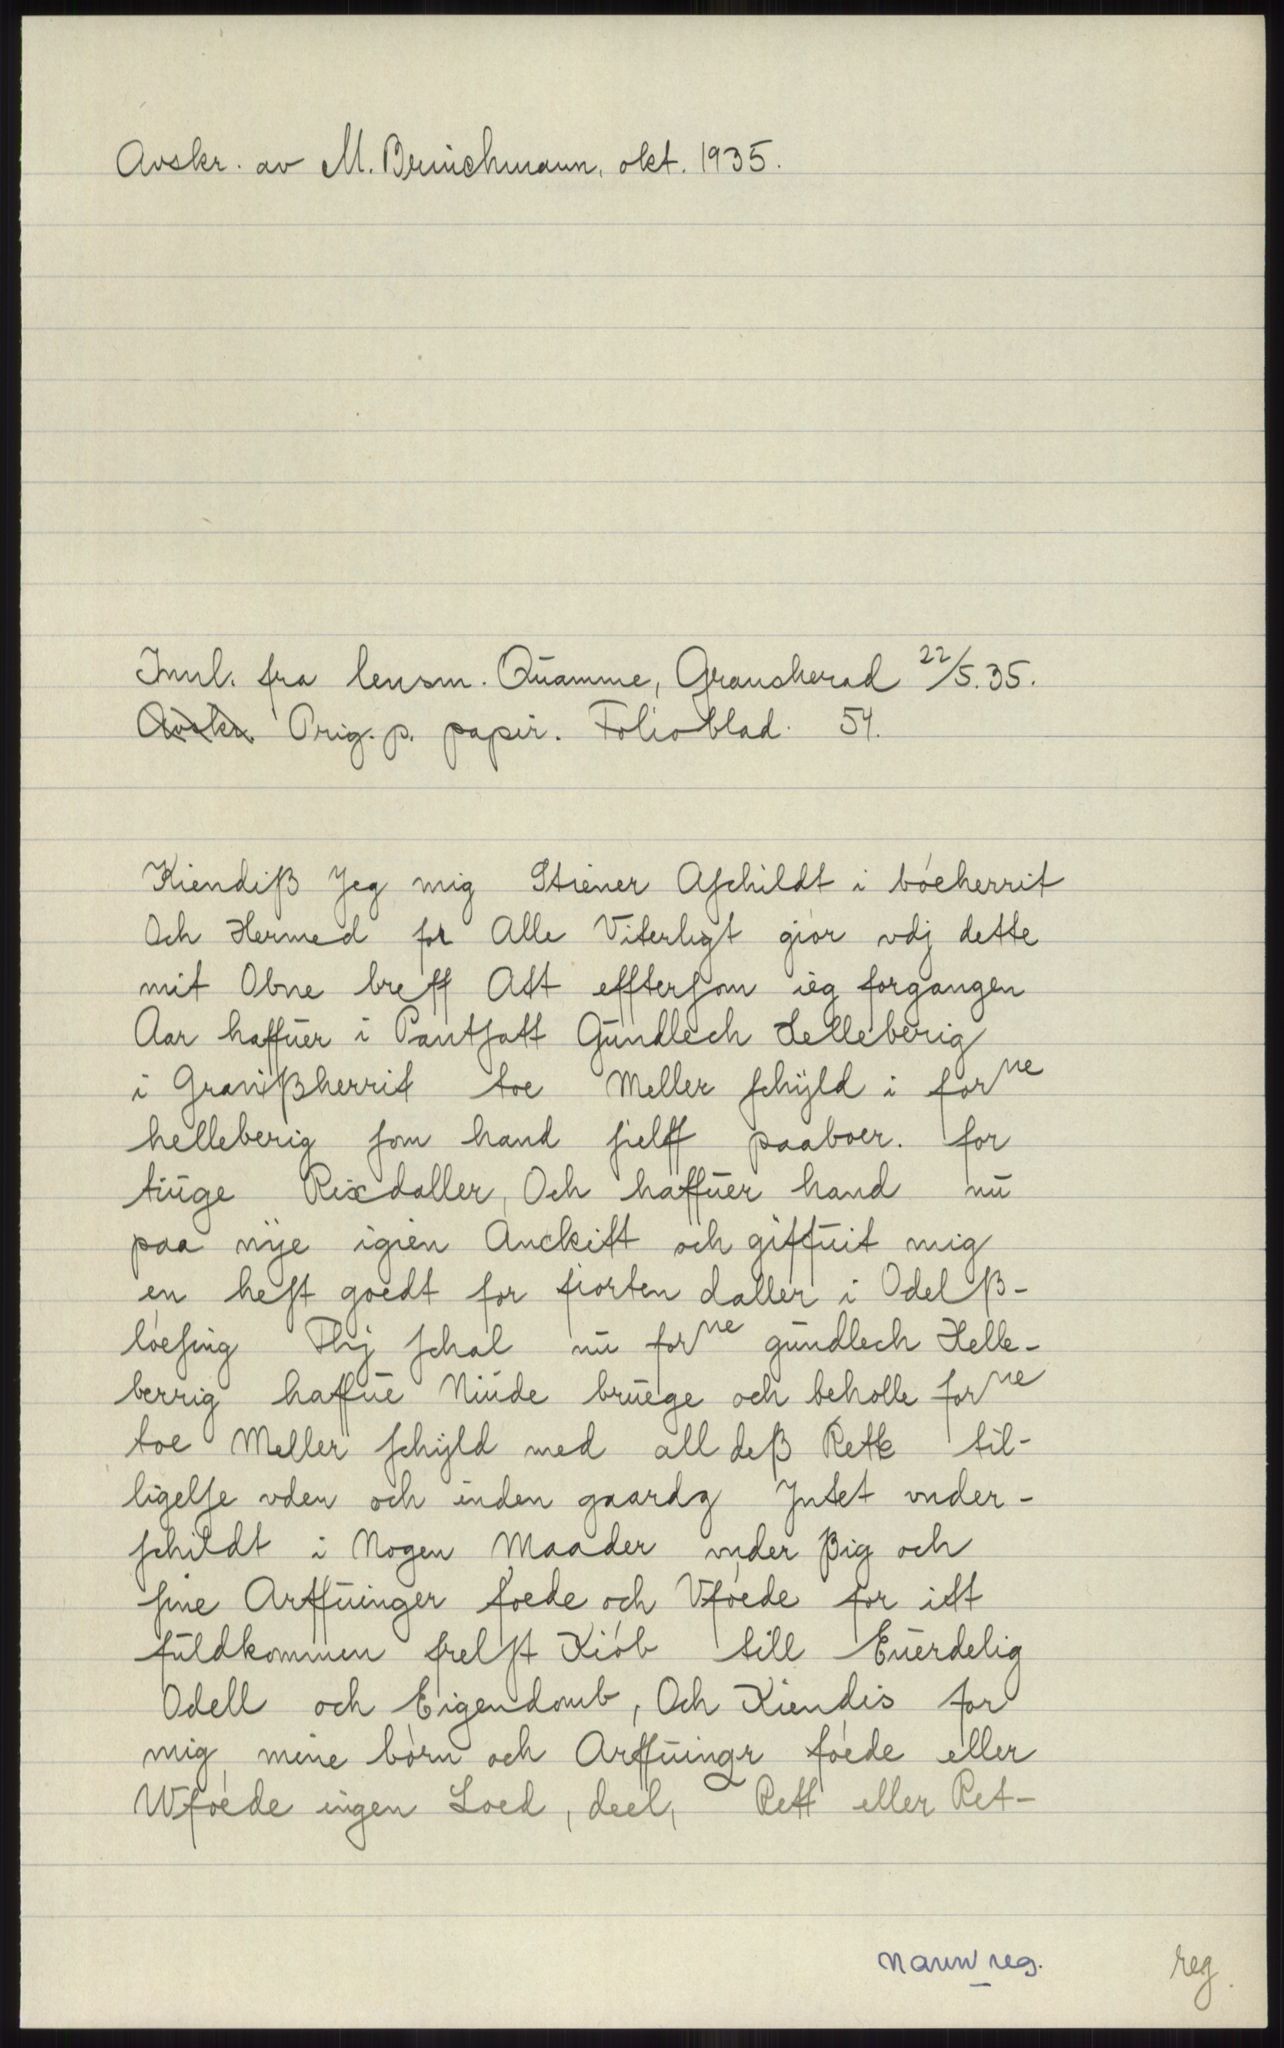 Avskr. av M. Brinchmann, okt. 1935.
Innl. fra lensm. Quamme, Gransherad 22/5.35.
Avskr. Orig. p. papir. Folioblad. 54.
Kiendiß Jeg mig Stiener Aschildt i bóeherrit
Och Hermed for Alle Viterligt giór vdj dette
mit Obne breff Att efftersom ieg forgangen
Aar haffuer i Pantsatt Gundlech Helleberig
i Granißherrit toe Meller schÿld i forne
helleberig som hand sielff paaboer. for
tiuge Rixdaller, Och haffuer hand nu
paa nÿe igien Anckitt och giffuit mig
en hest goedt for fiorten daller i Odelß-
lóesing Thj schal nu forne gundlech Helle-
berrig haffue Niude bruege och beholle forne
toe Meller schÿld med all deß Rette til-
ligelse vden och inden gaardz Jntet vnder-
schildt i Nogen Maader vnder ßig och
sine Arffuinger fóede och Vfóede for itt
fuldkommen frelst Kiób till Euerdelig
Odell och Eigendomb, Och Kiendis for
mig mine bórn och Arffuingr fóede eller
Wfóede ingen Loed, deel, Rett eller Ret-
navn reg.
reg.